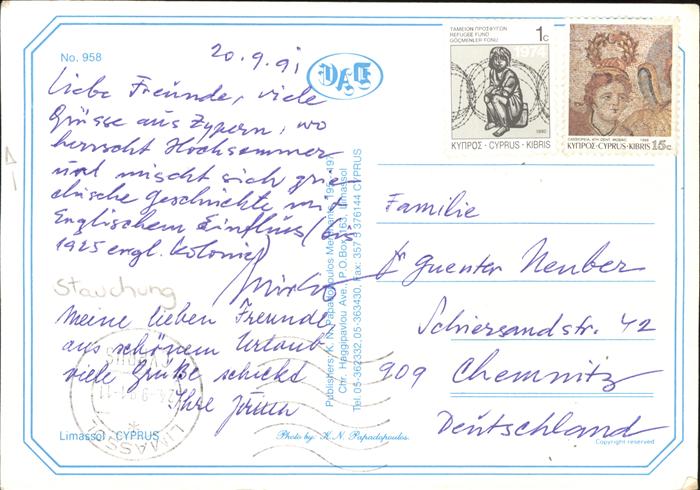 No. 958
20.9.91
Liebe Freunde, viele
Grüsse aus Zypern, wo
herrscht Hochsommer
und mischt sich grie-
chische Geschichte mit
Englischem Einfluss (bis
1925 engl. Kolonie)
Stauchung
Meine lieben Freunde
aus schönem Urlaub
viele Grüße schickt
Ihre
Limassol - CYPRUS
LIMASSOL
Photo by: K. N. Papadopoulos.
Publishers: K. N. Papadopoulos
Chr. Haggipavlou Ave., P.O.Box 163, Limassol
Tel. 05-362332, 05-363430, Fax: 357 5 376144 CYPRUS
ΤΑΜΕΙΟΝ ΠΡΟΣΦΥΓΩΝ
REFUGEE FUND
GÖÇMENLER FONU
1c
1974
1990
ΚΥΠΡΟΣ - CYPRUS - KIBRIS
CASSIOPEIA, 4TH CENT. MOSAIC 1989
ΚΥΠΡΟΣ-CYPRUS-KIBRIS 15c
Familie
Guenter Neuber
Schiersandstr. 42
909 Chemnitz
Deutschland
Copyright reserved